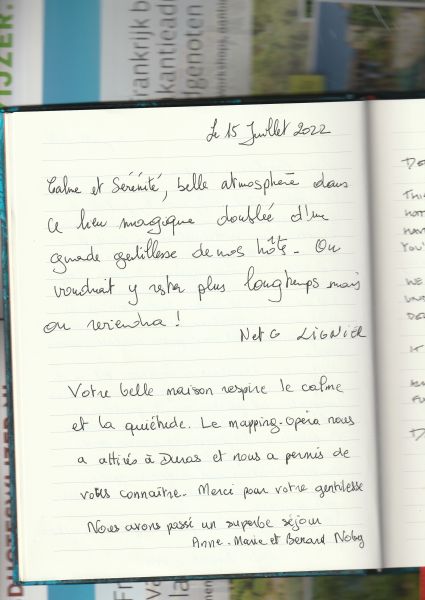 IJZER.
Frankrijk b
kantiead
genoten
workshops,
Le 15 Juillet 2022
Calme et Sérénité, belle atmosphère dans
ce lieu magique doublée d'une
grande gentillesse de nos hôtes. On
voudrait y rester plus longtemps mais
on reviendra !
N et G LIGNIER
Votre belle maison respire le calme
et la quiétude. Le mapping-opéra nous
a attirés à Duras et nous a permis de
vous connaître. Merci pour votre gentillesse
Nous avons passé un superbe séjour
Anne-Marie et Bernard
THI
HOT
HAV
YOU'
WE
UND
DE
IT
FU
Fr
Va
la